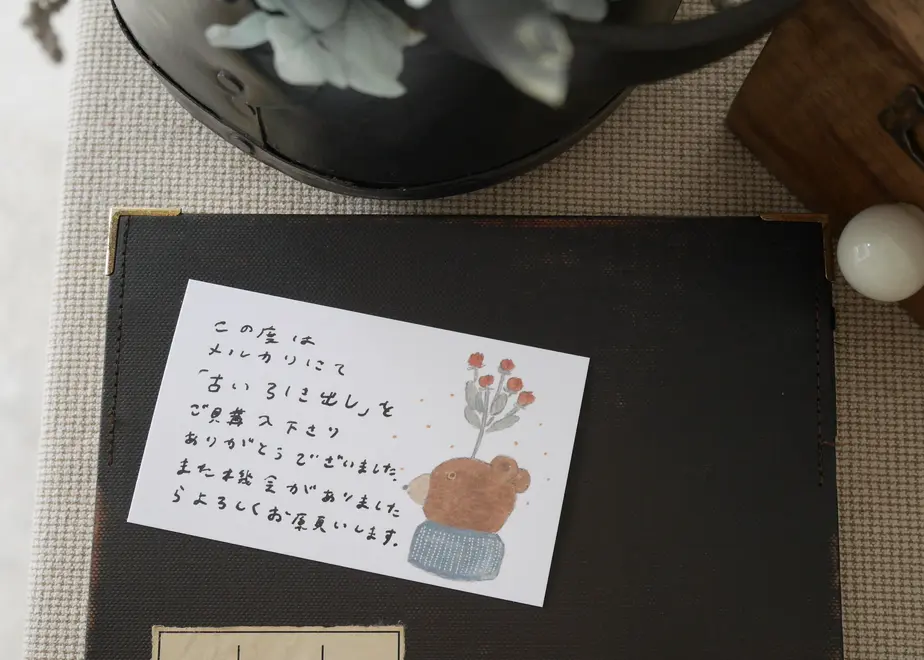 この度は
メルカリにて
「古い引き出し」を
ご具購入下さり
ありがとうございました。
また機会がありました
らよろしくお願いします。